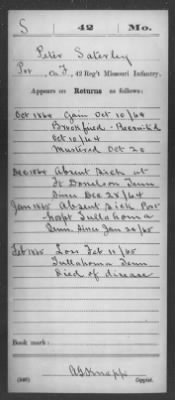 S 42 Mo.
Peter Saterley
Pvt., Co. F, 42 Reg't Missouri Infantry.
Appears on Returns as follows:
Oct 1864 Gain Oct 10/64
Brookfield Recruited
Oct 10/64
Mustered Oct 20
Dec 1864 Absent Sick at
Ft Donelson Tenn
Since Dec 28/64
Jan 1865 Absent Sick Post
hospt Tullahoma
Tenn. Since Jan 26/65
Feb 1865 Loss Feb 11/65
Tullahoma Tenn
Died of disease
Book mark:
(546) A G Knapp
Copyist.